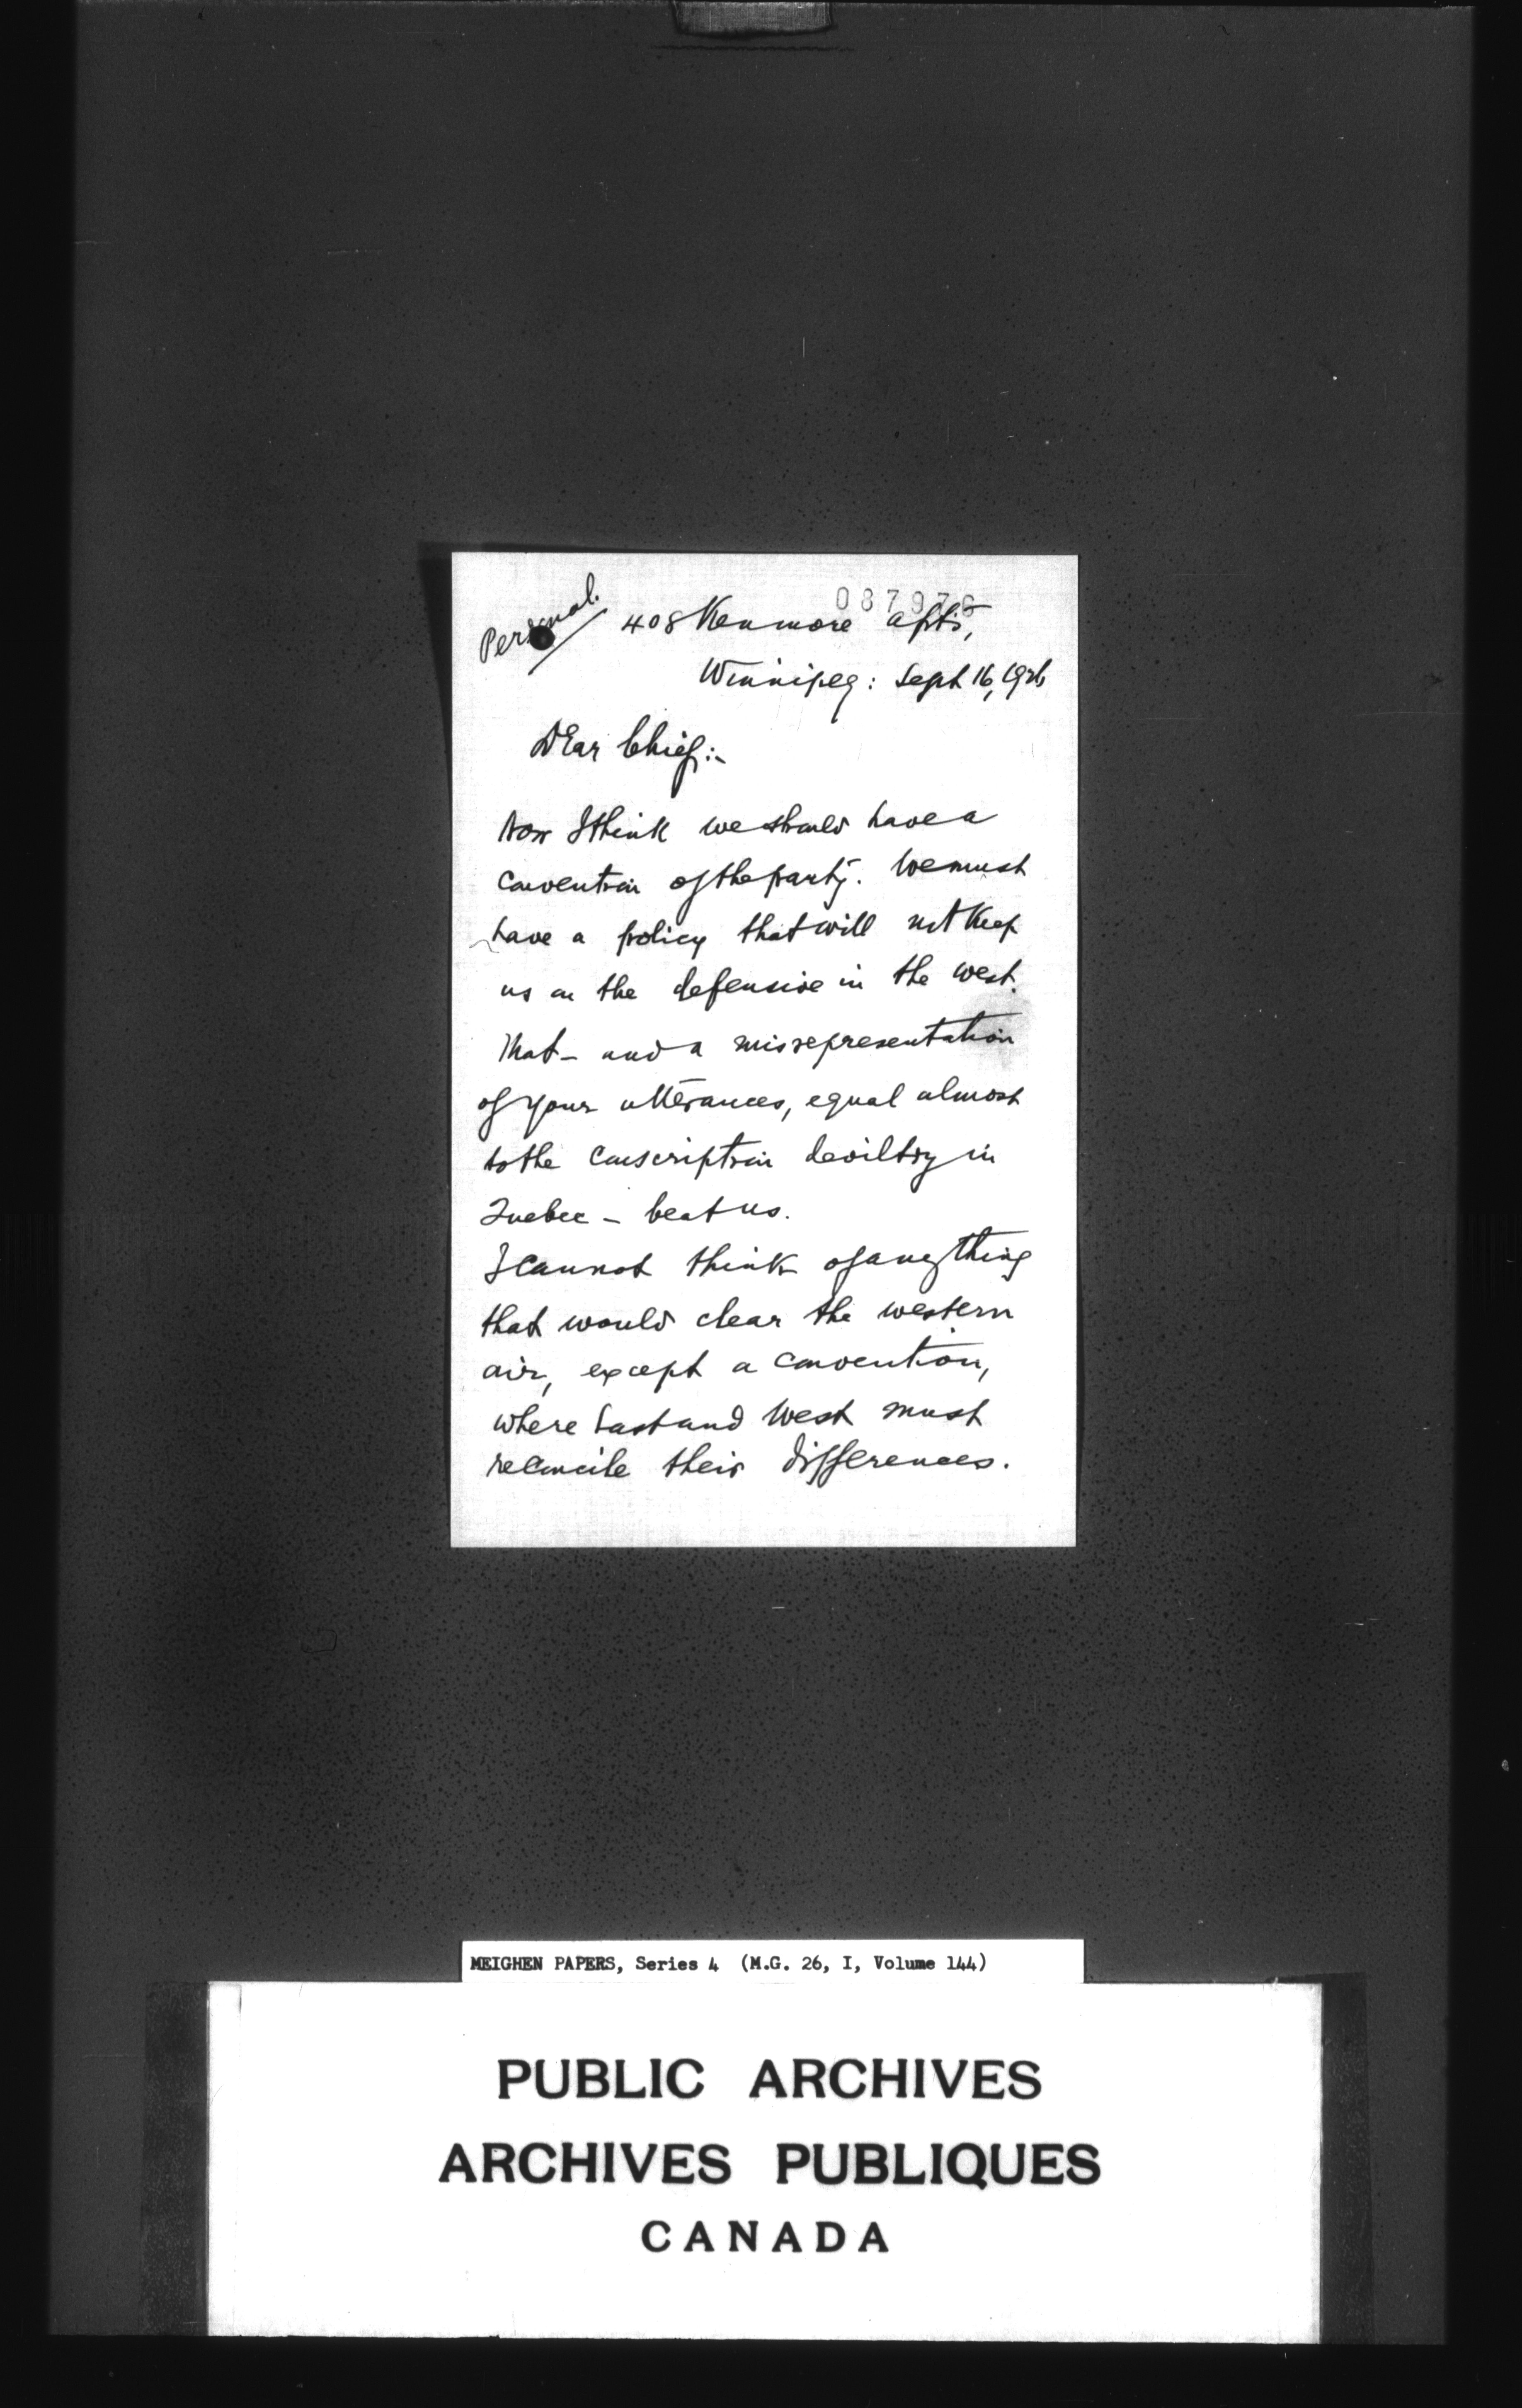 Personal.
087976
408 Kenmore apts,
Winnipeg: Sept 16, 1926
Dear Chief:-
Now I think we should have a
convention of the party. We must
have a policy that will not keep
us on the defensive in the west.
That - and a misrepresentation
of your utterances, equal almost
to the conscription deviltry in
Quebec - beat us.
I cannot think of anything
that would clear the western
air, except a convention,
where East and West must
reconcile their differences.
MEIGHEN PAPERS, Series 4 (M.G. 26, I, Volume 144)
PUBLIC ARCHIVES
ARCHIVES PUBLIQUES
CANADA